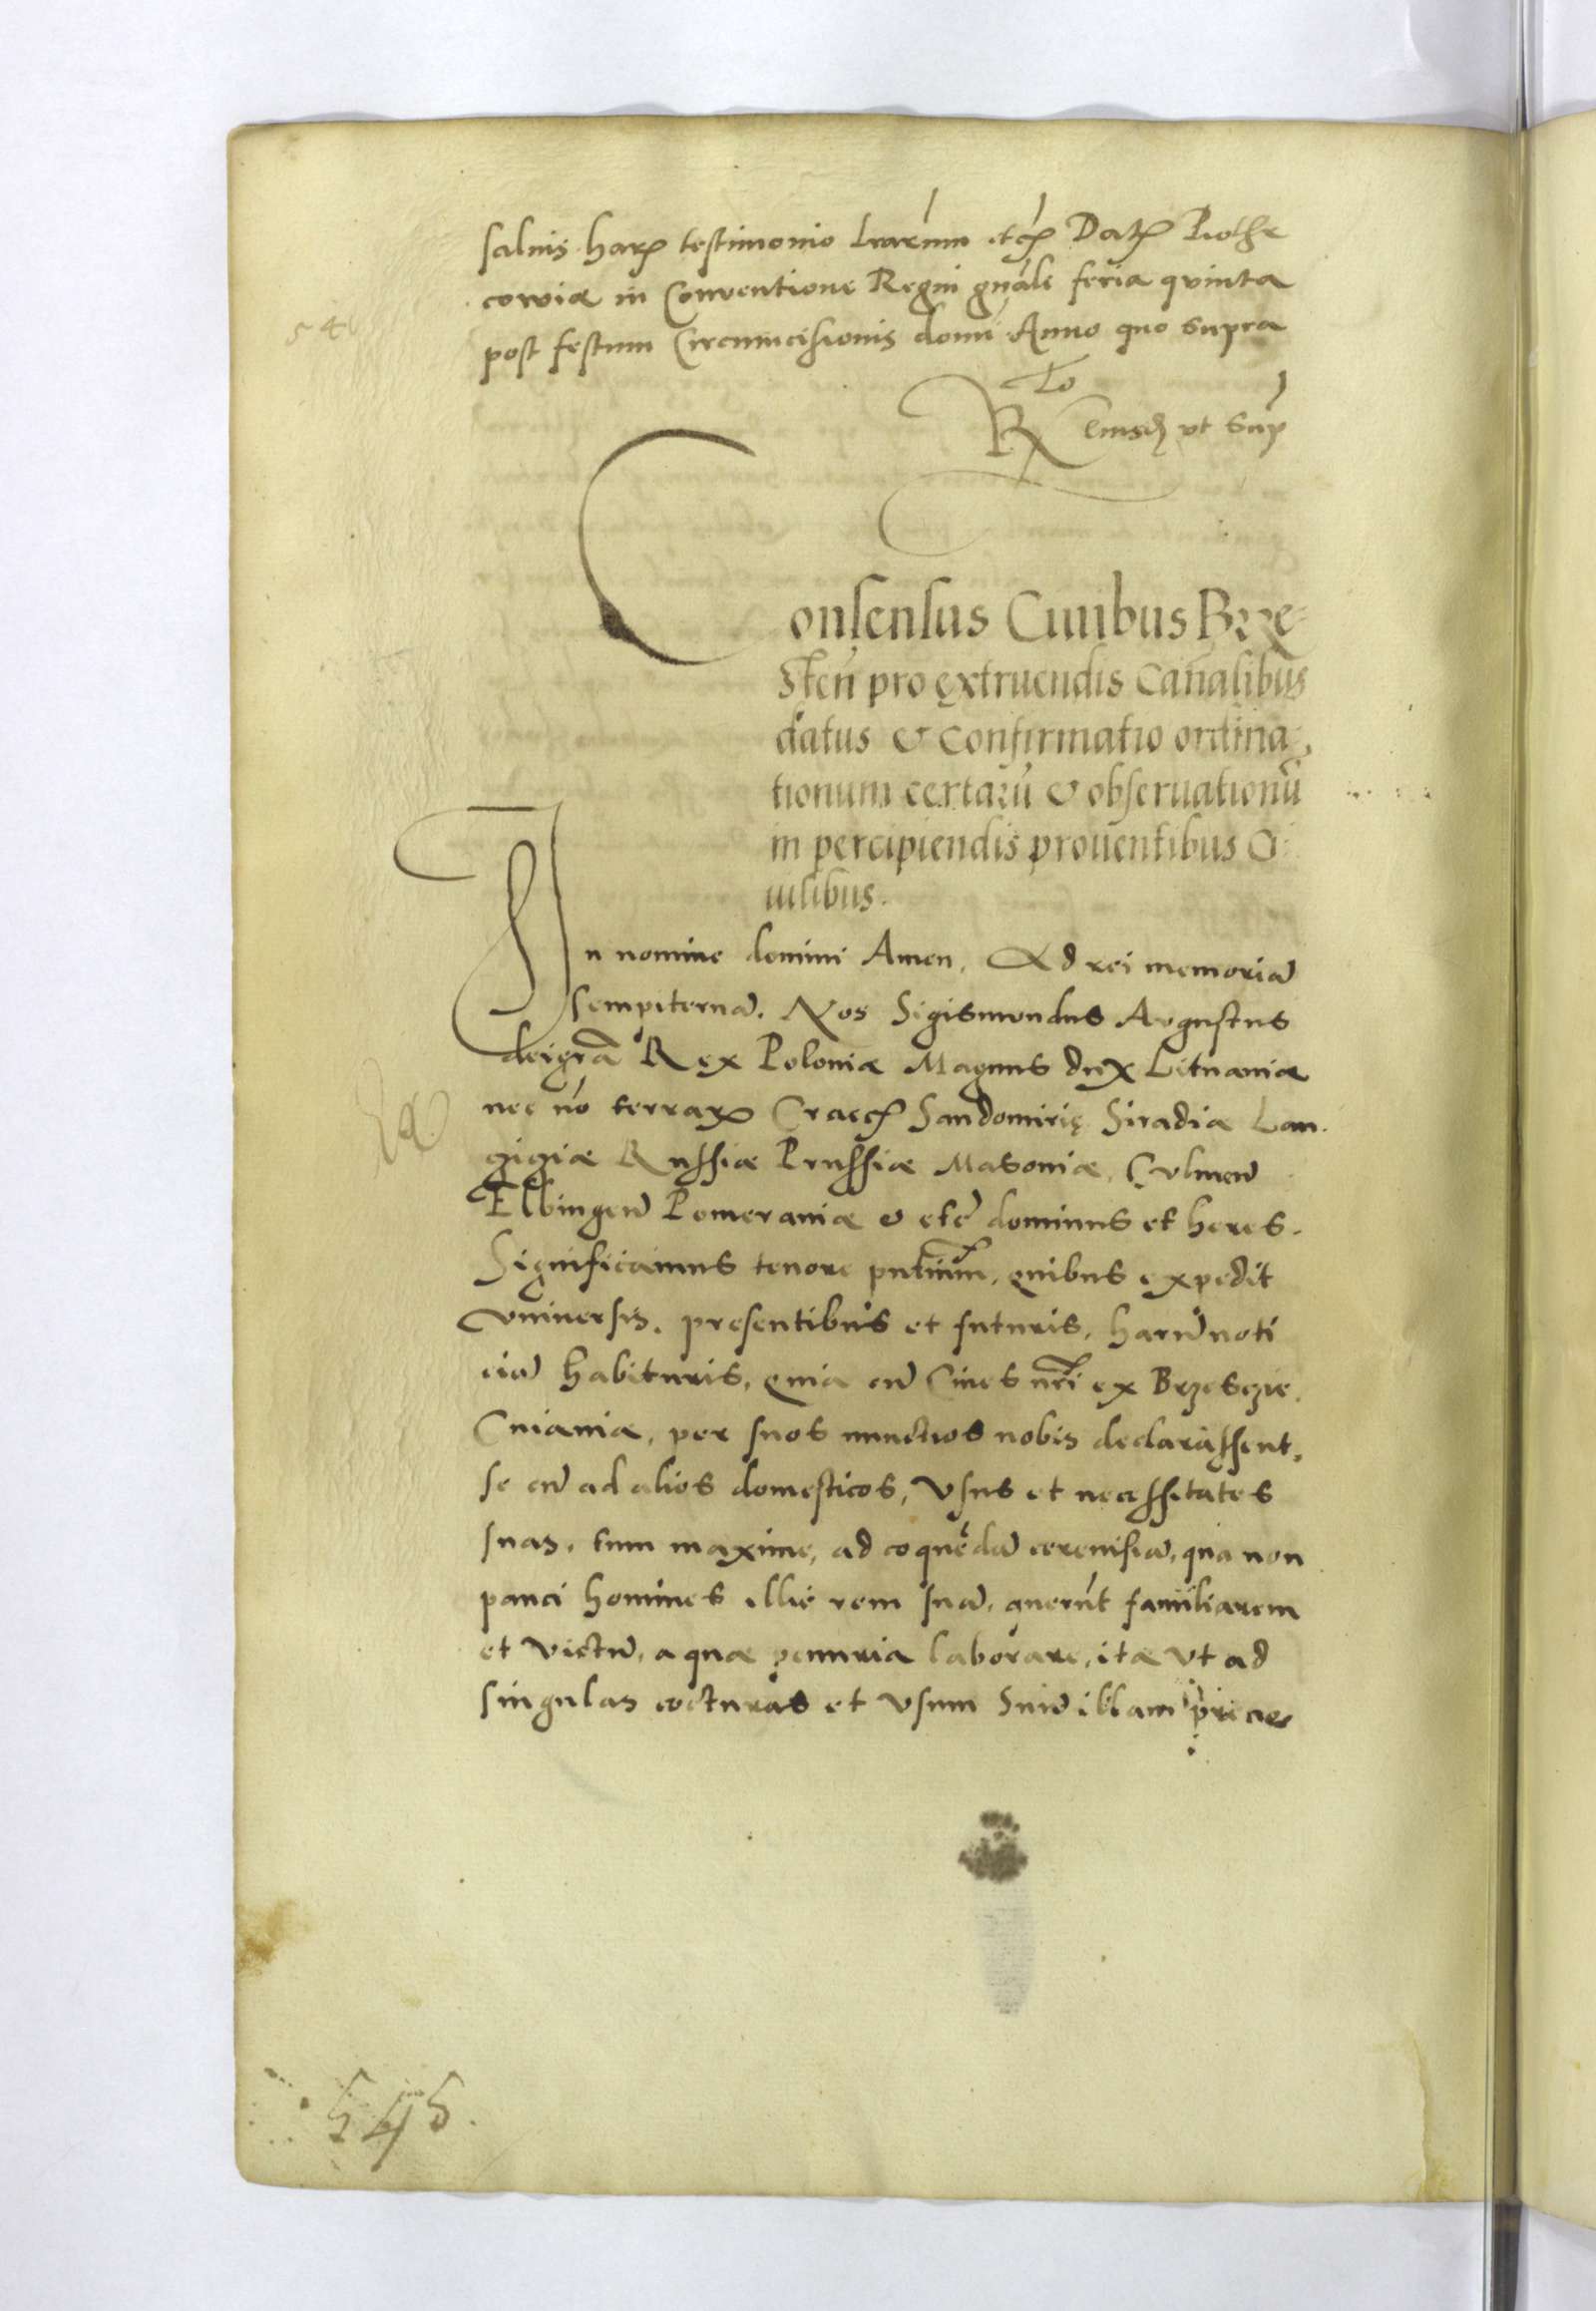 salvis harum testimonio lrarum etc Datum Piothr
coviæ in Conventione Regni gnali feria quinta
post festum Circumcisionis domi Anno quo supra
54
Rto eiusdem ut sup
Consensus Ciuibus Brze-
sten pro extruendis Canalibus
datus & Confirmatio ordina,
tionum certarū & obseruationū
in percipiendis prouentibus Ci
uilibus.
In nomine domini Amen. Ad rei memoriā
sempiternā. Nos Sigismundus Augustus
dei grā Rex Poloniæ Magnus dux Lituaniæ
nec nō terrarum Cracoviæ Sandomirię Siradiæ Lan.
cigiæ Russiæ Prussiæ Masoviæ, Culmen̄
Elbingen̄ Pomeraniæ & etc dominus et heres.
Significamus tenore pntium, quibus expedit
vniuersis. presentibus et futuris, harū noti
ciā habituris, quia cū Ciues nrī ex Brzesczie
Cuiaviæ, per suos nunctios nobis declarassent,
se cū ad alios domesticos, vsus et necessitates
suas, tum maxime, ad coquēdā cereuisiā, qua non
pauci homines illic rem suā, querūt familiarem
et victū, aquæ penuria laborare, ita vt ad
singulas cocturas et vsum suū illam precio
545.